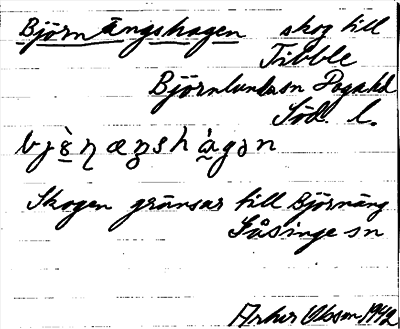 Björnängshagen skog till
Tibble
Björnlunda sn Daga hd
Söd. l.
bjö̀ṇæŋshá̱gən
Skogen gränsar till Björnäng
Gåsinge sn
Olsson 1942